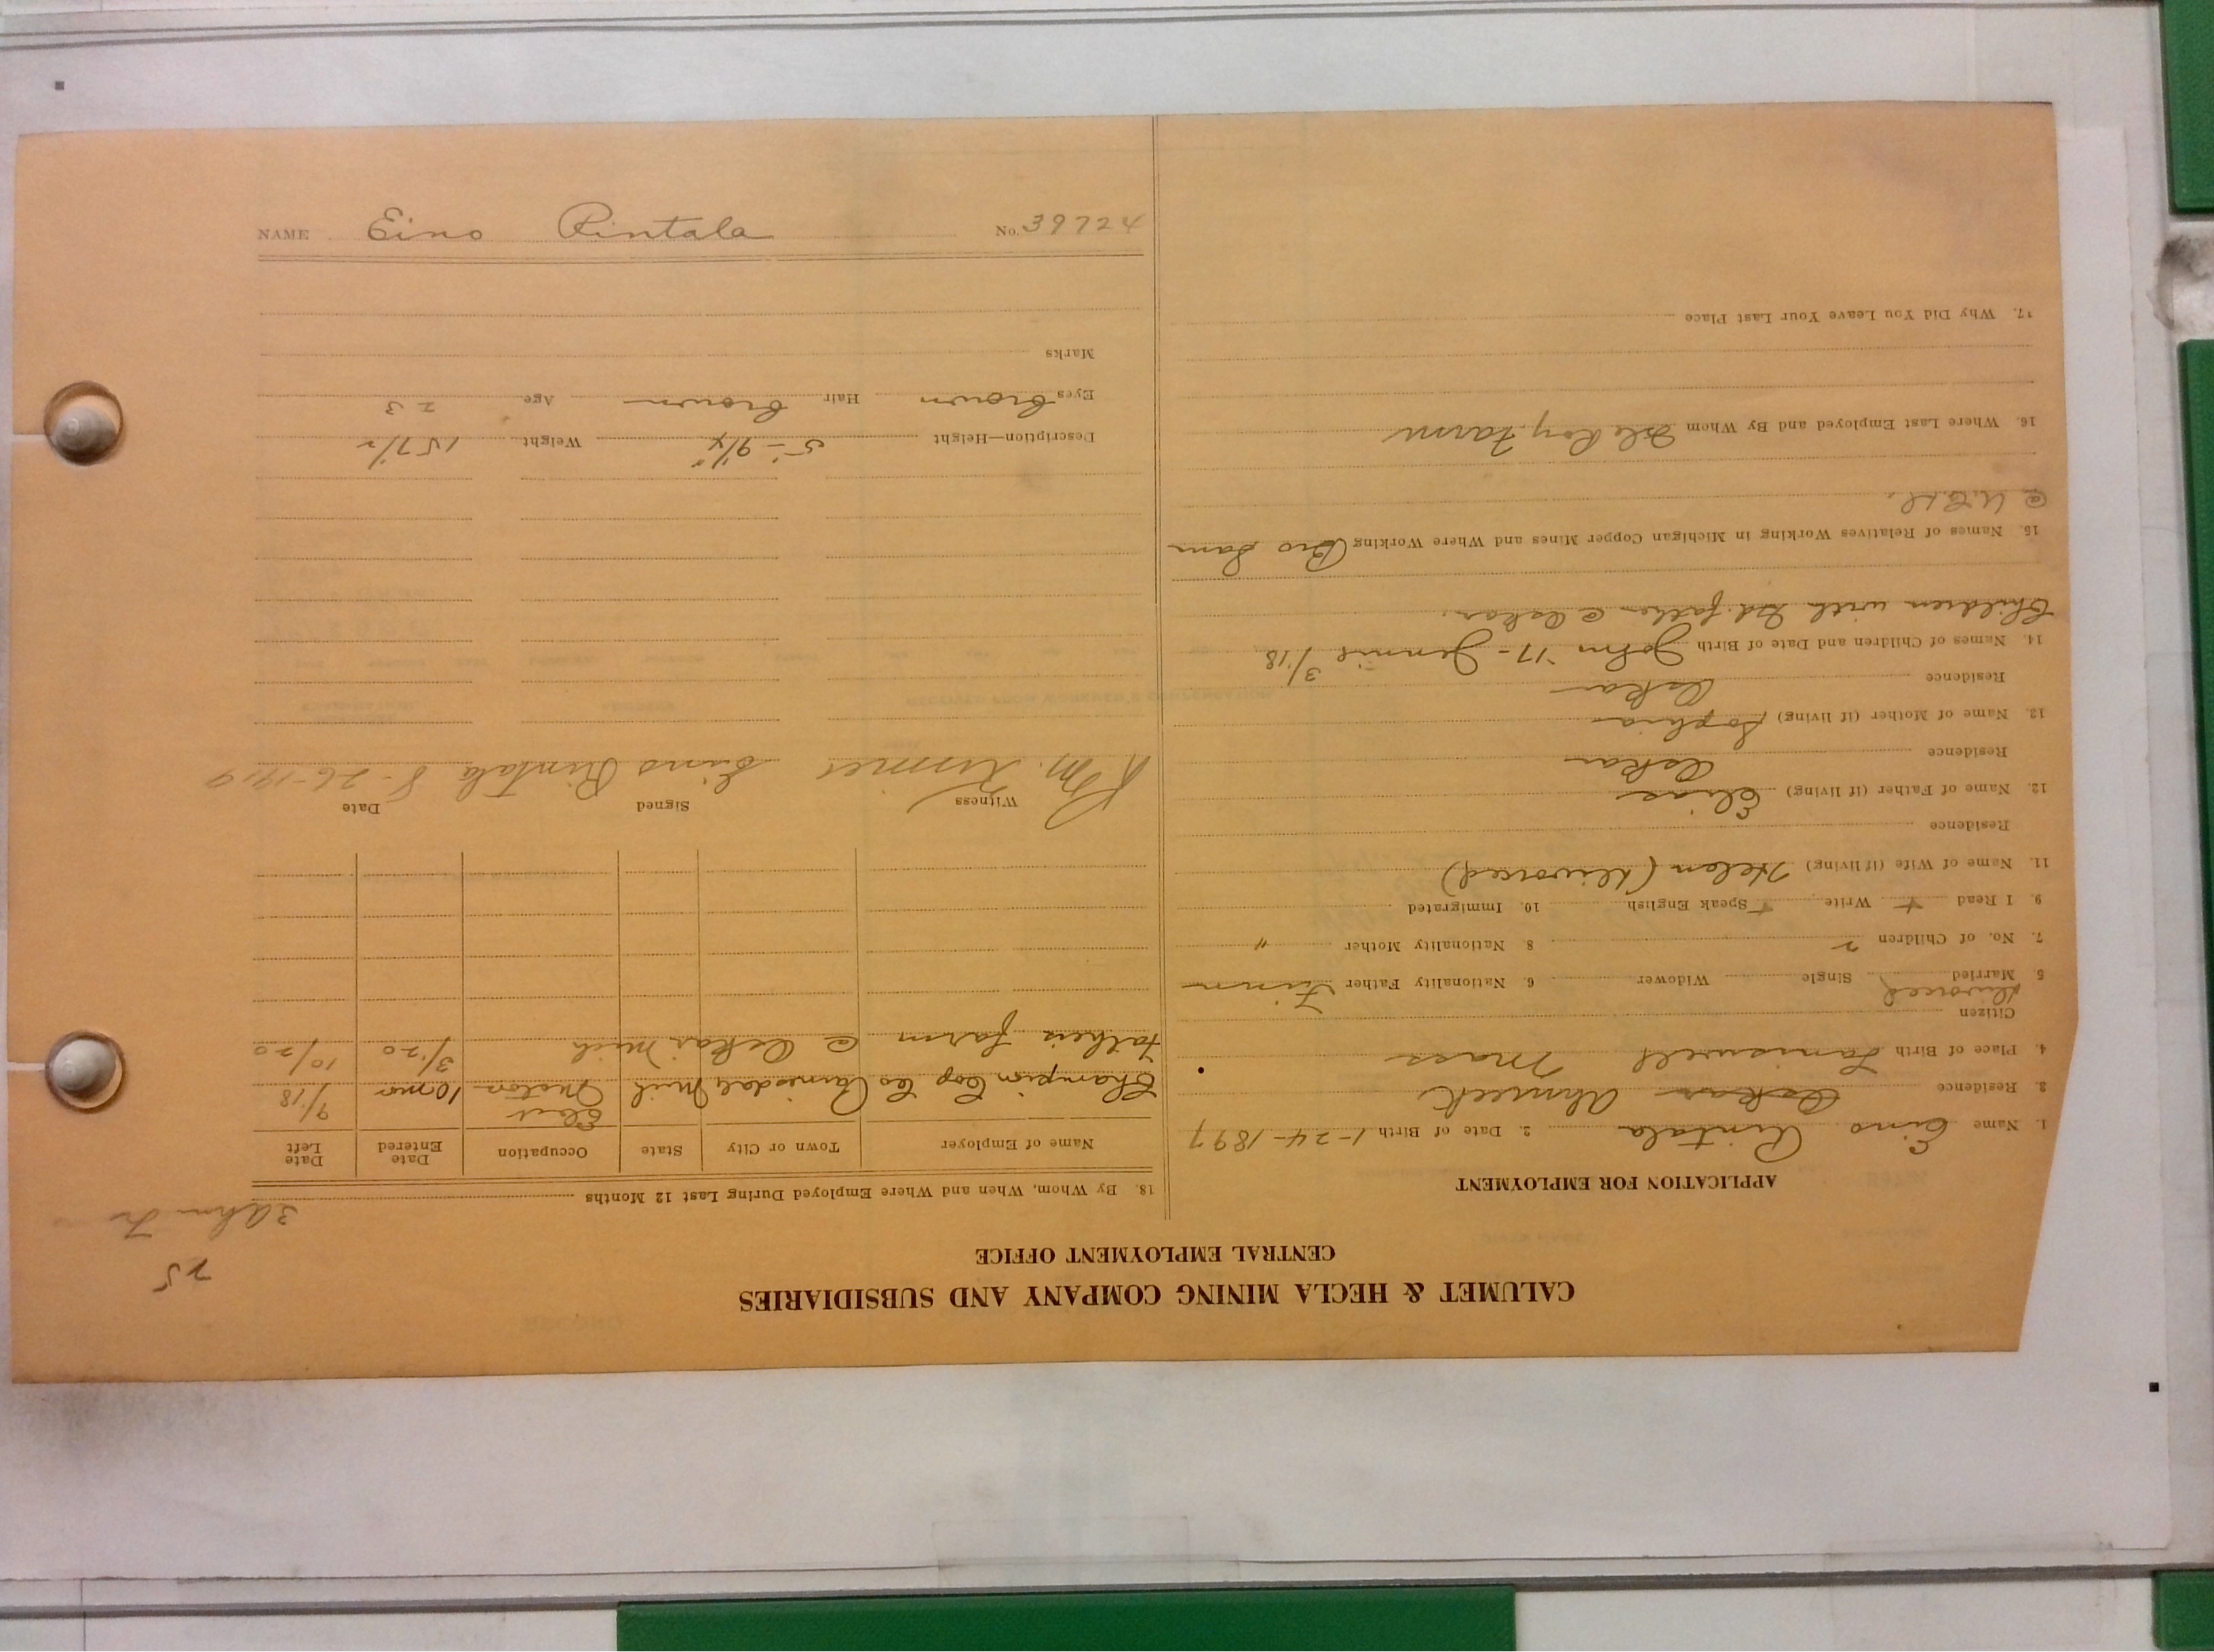 CALUMET & HECLA MINING COMPANY AND SUBSIDIARIES
CENTRAL EMPLOYMENT OFFICE
25
3 Ahm Tr
APPLICATION FOR EMPLOYMENT
1. Name Eino Rintala 2. Date of Birth 1-24-1897
3. Residence Askar Ahmeek
4. Place of Birth Mass
Citizen
Divorced
5. Married Single Widower 6. Nationality Father Finn
7. No. of Children 2 8. Nationality Mother "
9. I Read + Write + Speak English 10. Immigrated
11. Name of Wife (if living) Helen (Divorced)
Residence
12. Name of Father (if living) Elias
Residence Askar
13. Name of Mother (if living) Sophia
Residence Askar
14. Names of Children and Date of Birth John '17 - Jennie 3/18
Children with Gd. father @ Askar.
15. Names of Relatives Working in Michigan Copper Mines and Where Working Bro Sam
@
16. Where Last Employed and By Whom Farm
17. Why Did You Leave Your Last Place
18. By Whom, When and Where Employed During Last 12 Months
Name of Employer Town or City State Occupation Date Entered Date Left
Elect
Champion Cop Co Painesdale Mich Motor 10 mos 9/18
Fathers farm @ Askar Mich 3/20 10/20
Witness Signed Date
Eino Rintala 8-26-1919
Description—Height 5'-9 1/4" Weight 157 1/2
Eyes Brown Hair Brown Age 23
Marks
NAME Eino Rintala No. 39724